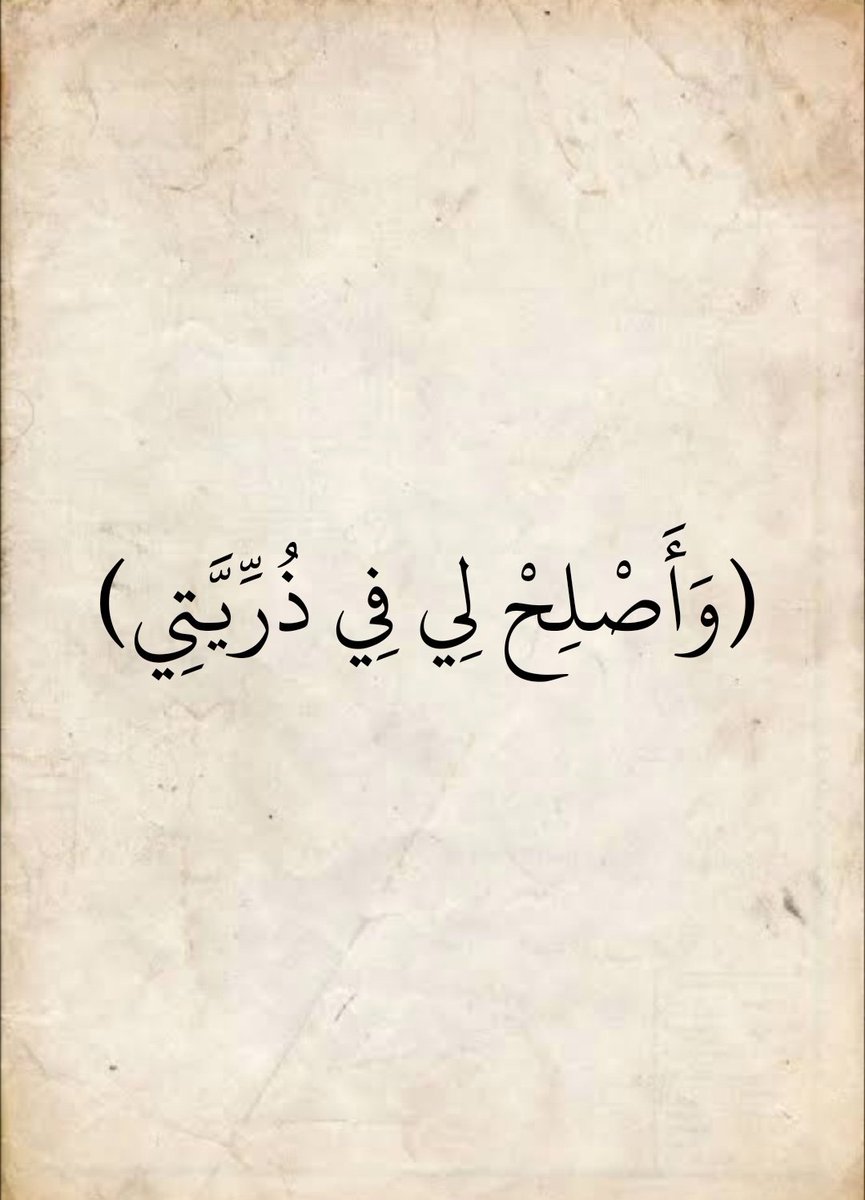 (وَأَصْلِحْ لِي فِي ذُرِّيَّتِي)